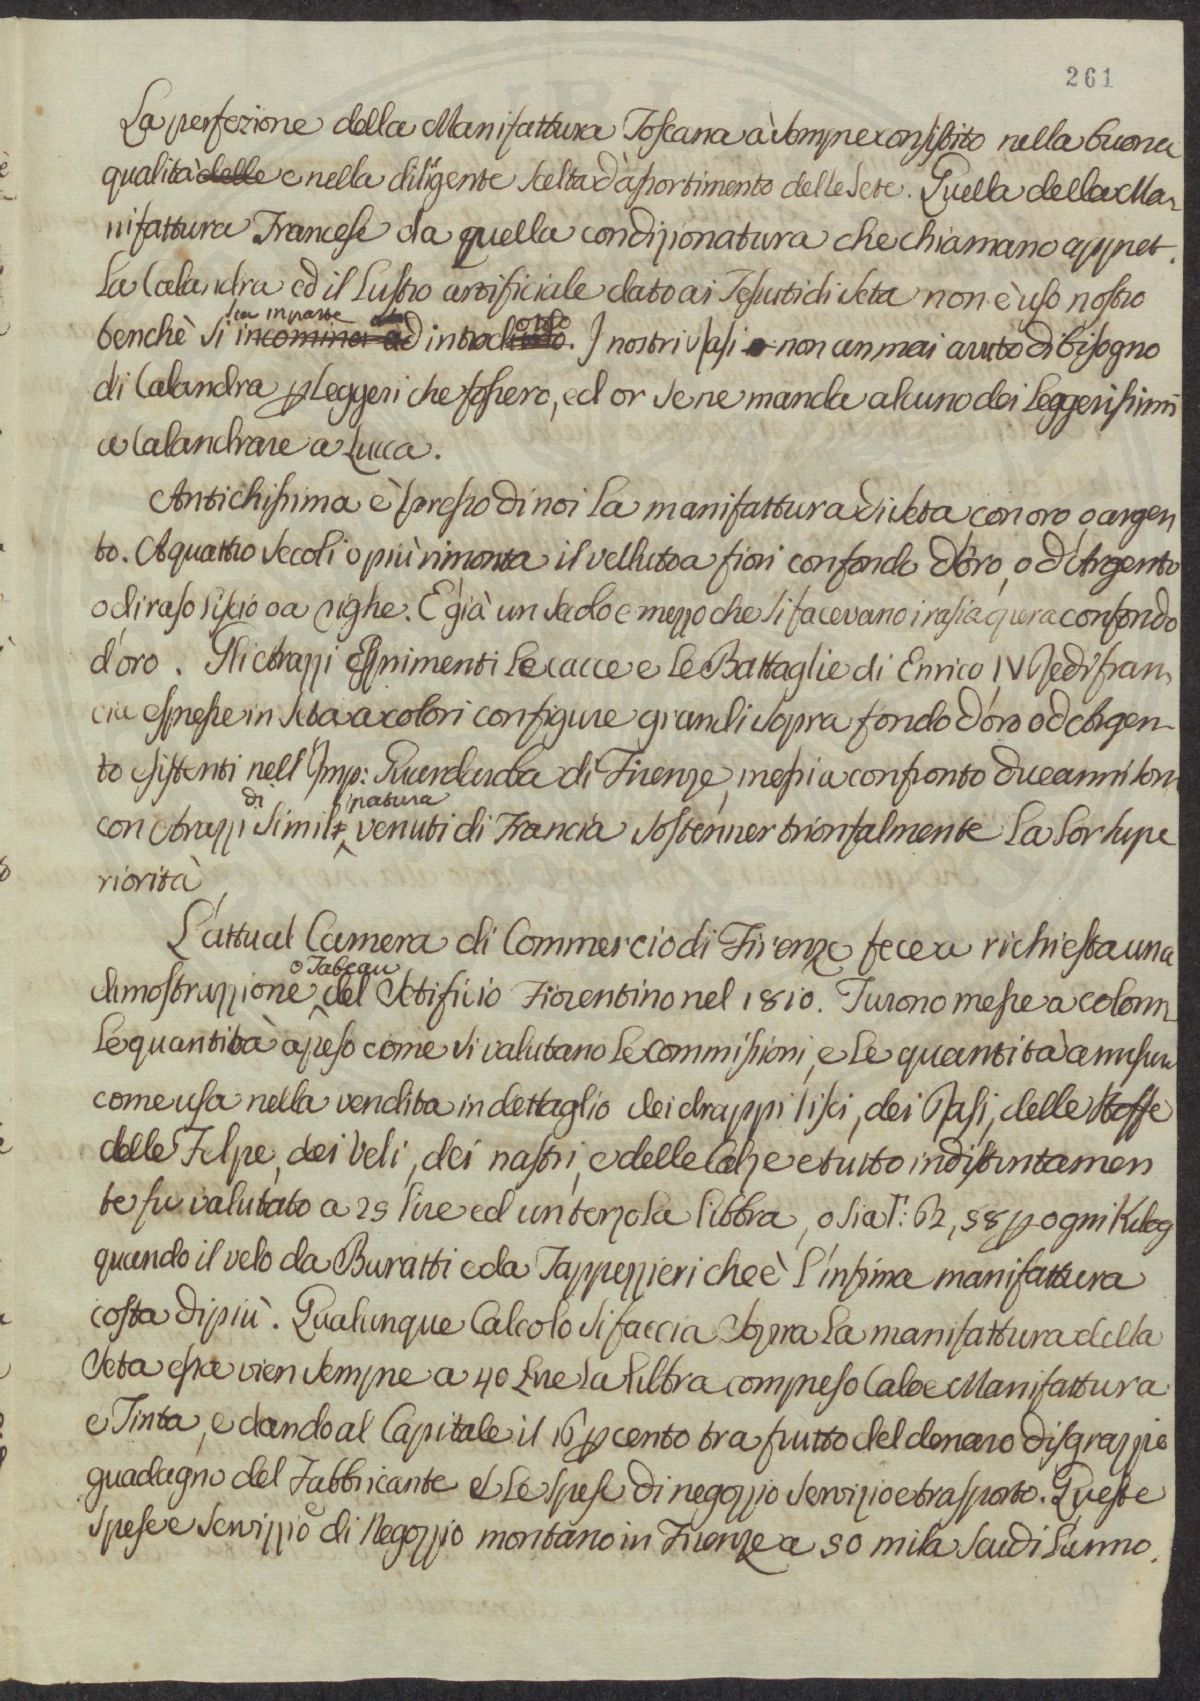 261
La perfezione della Manifattura Toscana à sempre consistito nella buona
qualità delle e nella diligente scelta d'assortimento delle Sete. Quella della Ma-
nifattura Francese da quella condizionatura che chiamano appret.
La Calandra ed il Lustro artificiale dato ai Tessuti di seta non è uso nostro
sia in parte otto
benchè si incominci ad introdutto. I nostri rasi non an mai avuto di bisogno
di Calandra p leggeri che fossero, ed or se ne manda alcuno dei leggerissimi
a Calandrare a Lucca.
Antichissima è presso di noi la manifattura di seta con oro o argen
to. A quattro secoli o più rimonta il velluto a fiori con fondo d'oro, o d'Argento
o di raso liscio o a righe. E già un secolo e mezzo che si facevano i rasi a opera con fondo
d'oro. Gli Arazzi esprimenti le cacce e le Battaglie di Enrico IV Re di Fran-
cia espresse in seta a colori con figure grandi sopra fondo d'oro o d'Argen-
to esistenti nell' Imp: Guardaroba di Firenze, messi a confronto due anni son
di natura
con Arazzi simile venuti di Francia sostenner trionfalmente la lor supe
riorità
L'attual Camera di Commercio di Firenze fece a richiesta una
o Tabeau
dimostrazzione del Setificio Fiorentino nel 1810. Furono messe a colonn
le quantità a peso come si valutano le commissioni, e le quantità a misura
come usa nella vendita in dettaglio dei drappi lisci, dei Rasi, delle Stoffe
delle Felpe, dei Veli, dei nastri, e delle Calze e tutto indistintamen
te fu valutato a 25 lire ed un terzo la libbra, o sia f: 62, 58 p ogni Kilog
quando il velo da Buratti e da Tappezzieri che è l'infima manifattura
costa di più. Qualunque Calcolo si faccia sopra la manifattura della
Seta essa vien sempre a 40 Lire la Libbra compreso Calo e Manifattura
e Tinta, e dando al Capitale il 16 p cento tra frutto del denaro disgrazzie
guadagno del Fabbricante e le spese di negozzio servizio e trasporto. Queste
spese e servizzio di Negozzio montano in Firenze a 50 mila scudi l'anno.